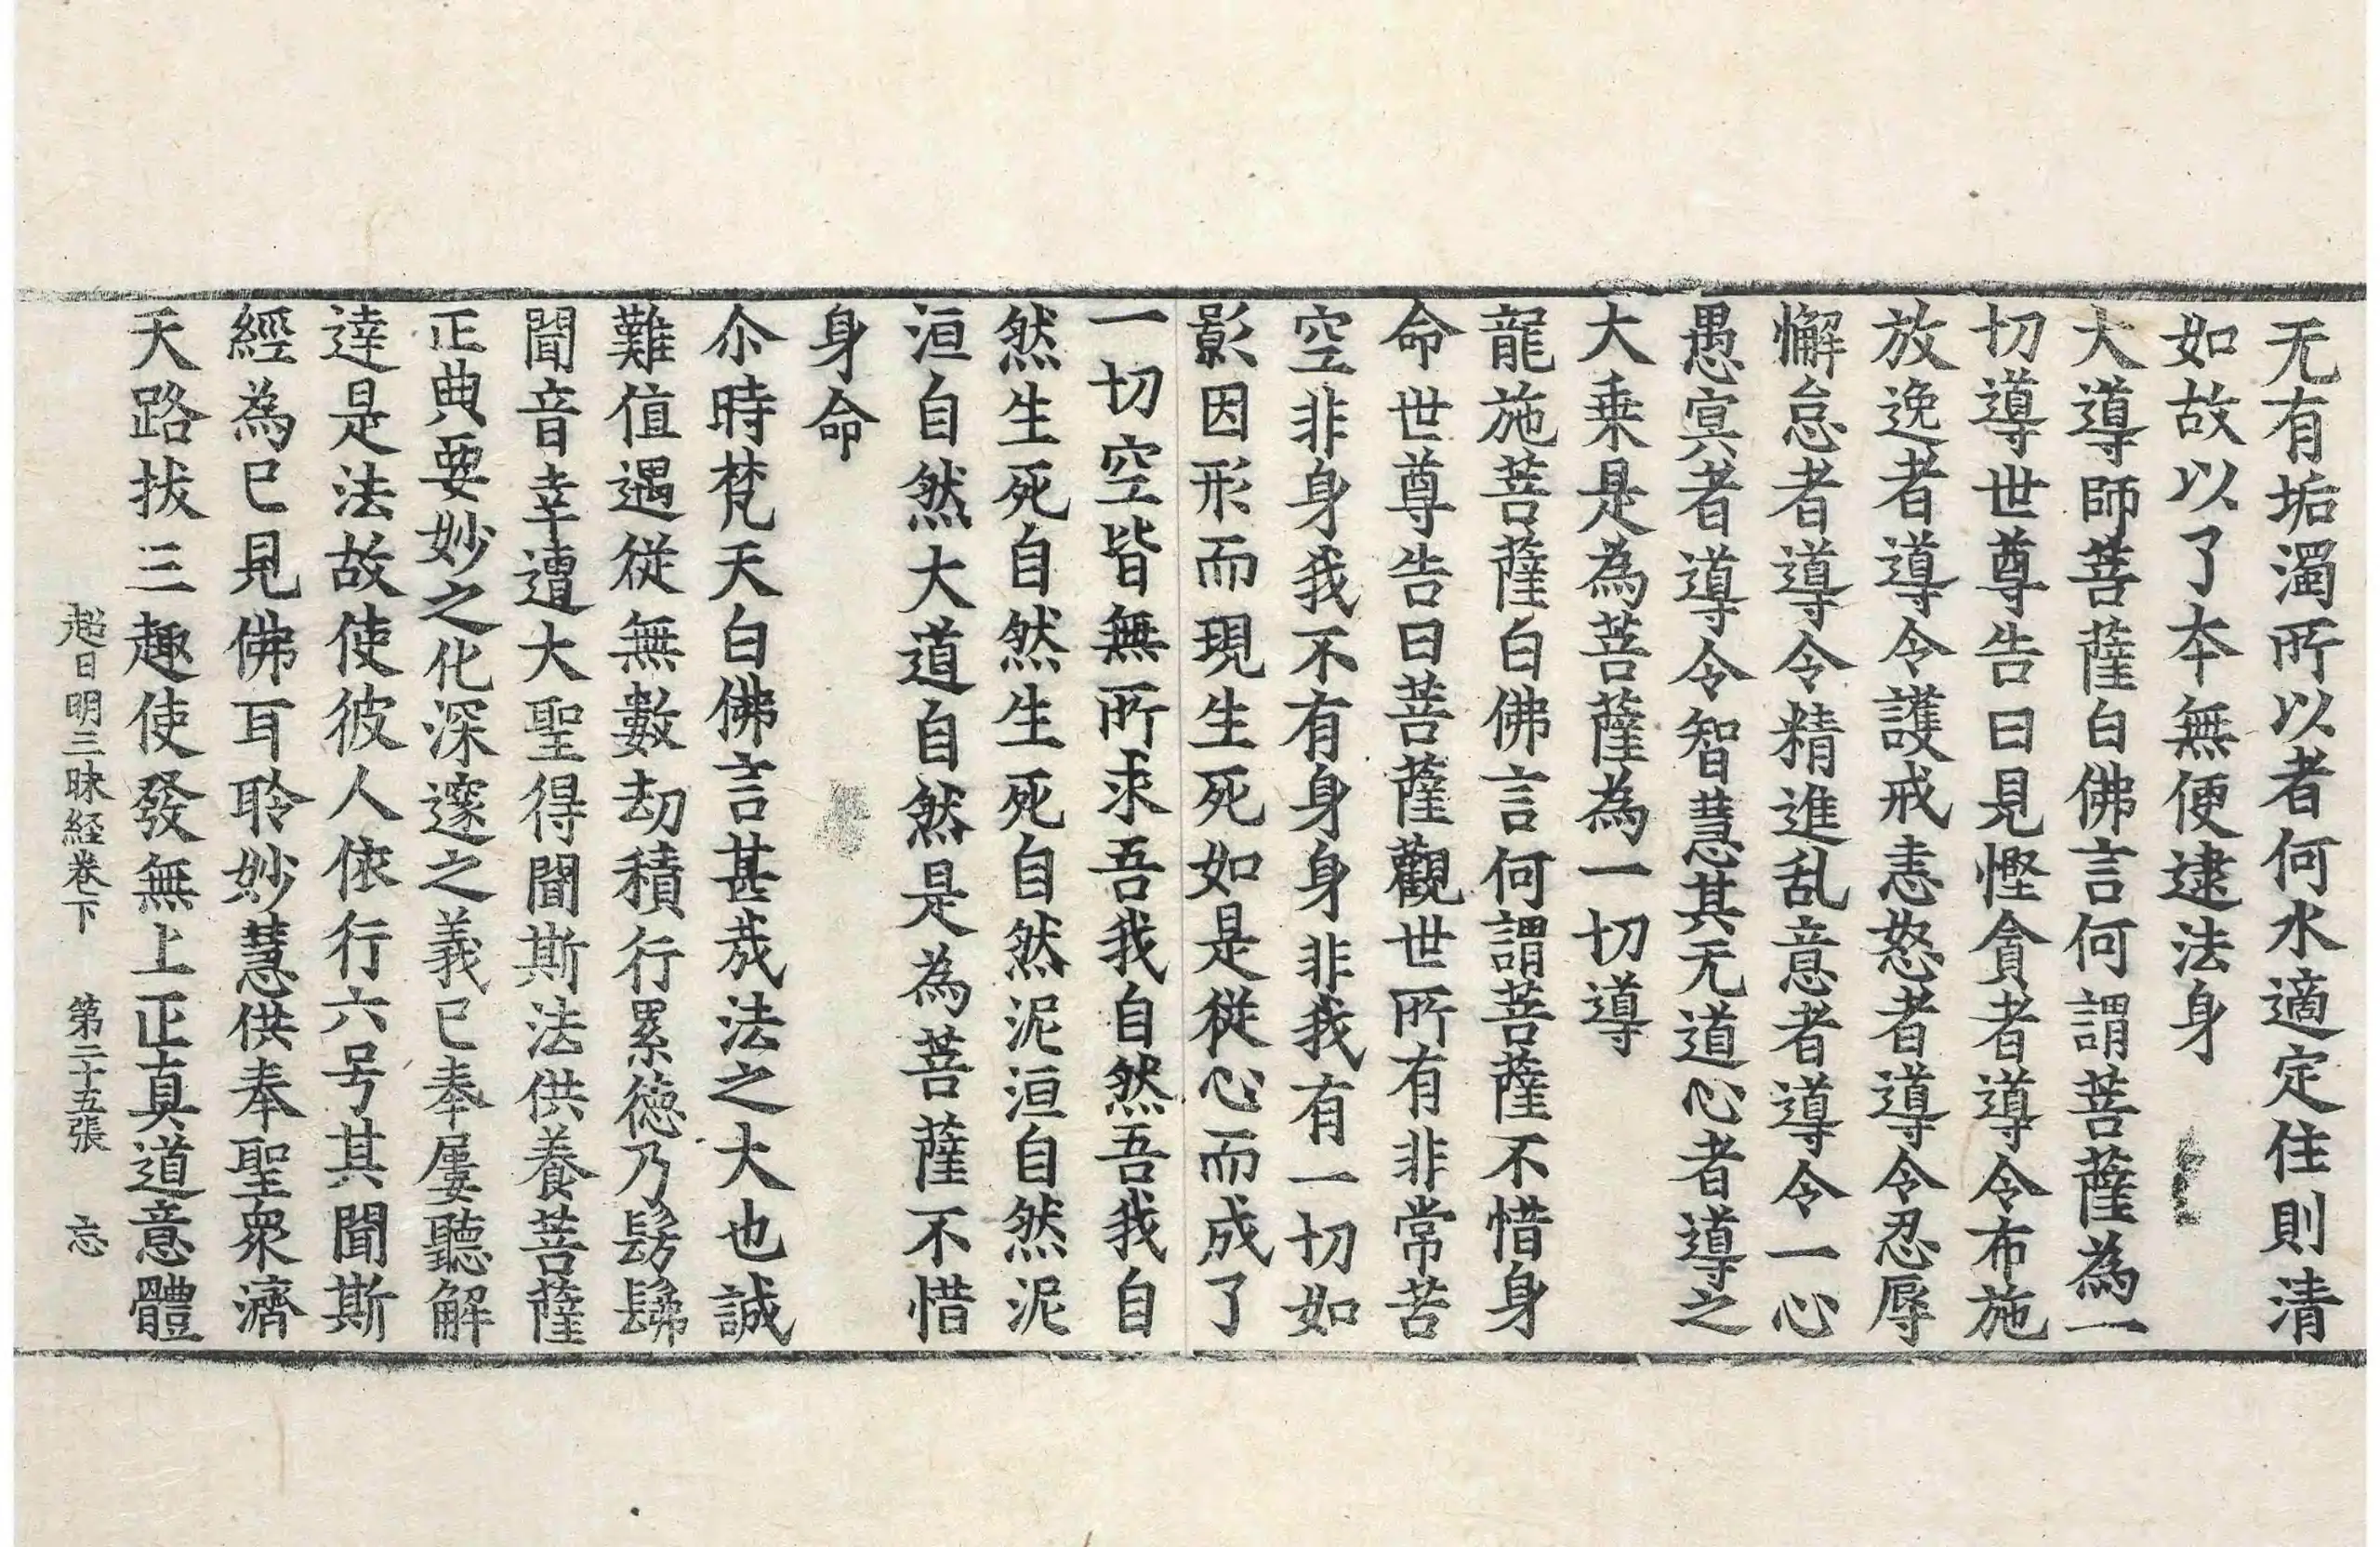 无有垢濁所以者何水適定住則清
如故以了本無便逮法身
大導師菩薩白佛言何謂菩薩為一
切導世尊告曰見慳貪者導令布施
放逸者導令護戒恚怒者導令忍辱
懈怠者導令精進乱意者導令一心
愚冥者導令智慧其无道心者導之
大乗是為菩薩為一切導
龍施菩薩白佛言何謂菩薩不惜身
命世尊告曰菩薩觀世所有非常苦
空非身我不有身身非我有一切如
影因形而現生死如是從心而成了
一切空皆無所求吾我自然吾我自
然生死自然生死自然泥洹自然泥
洹自然大道自然是為菩薩不惜
身命
尒時梵天白佛言甚㦲法之大也誠
難值遇從無數劫積行累德乃髣髴
聞音幸遭大聖得聞斯法供養菩薩
正典要妙之化深邃之義已奉屢聽解
達是法故使彼人依行六号其聞斯
經為已見佛耳聆妙慧供奉聖衆濟
天路拔三趣使發無上正真道意體
超日明三昧経卷下 第二十五張 忘